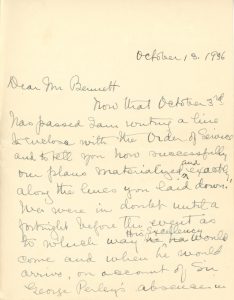 October 13. 1936
Dear Mr Bennett
Now that October 3rd
has passed I am writing a line
to enclose with the Order of Service
and to tell you how successfully
our plans materialized and exactly
along the lines you laid down.
We were in doubt until a
fortnight before the event as
to which way His Excellency would
come and when he would
arrive, on account of Sir
George Perley's absence in